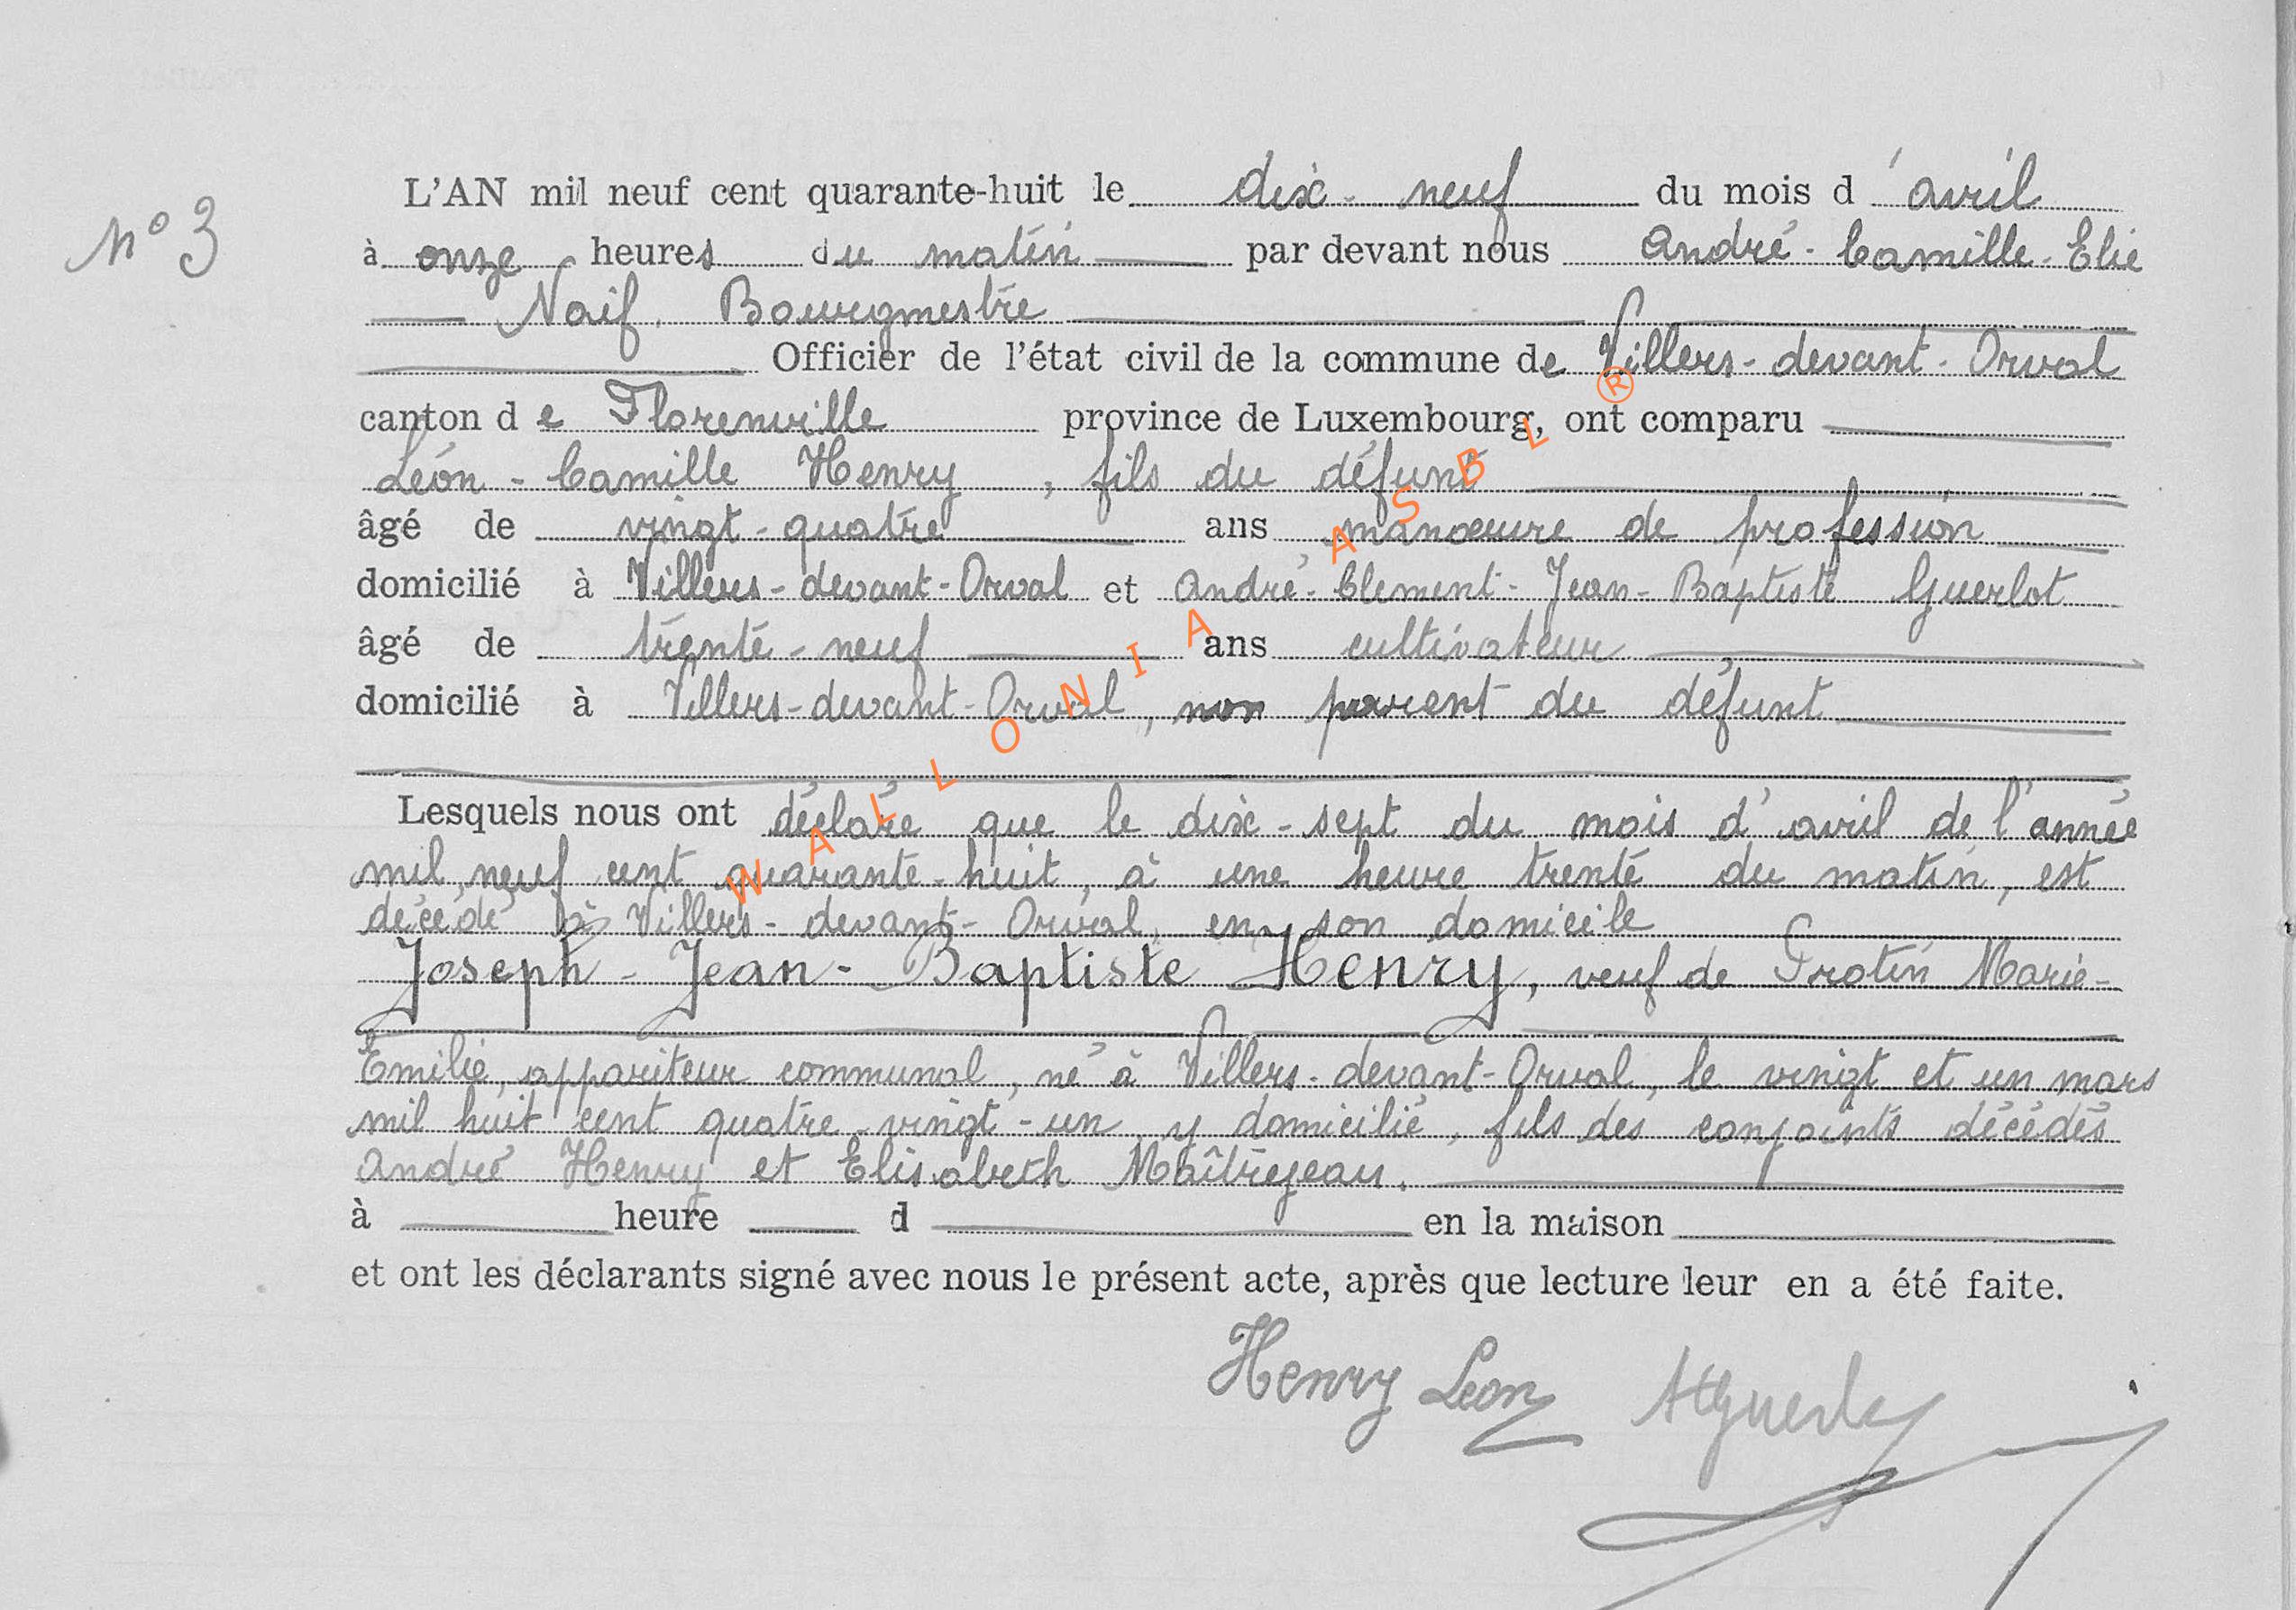 N° 3
L'AN mil neuf cent quarante-huit le dix-neuf du mois d'avril
à onze heures du matin par devant nous André-Camille-Elie
Naif, Bourgmestre
Officier de l'état civil de la commune de Villers-devant-Orval
canton de Florenville province de Luxembourg, ont comparu
Léon-Camille Henry, fils du défunt
âgé de vingt-quatre ans manœuvre de profession
domicilié à Villers-devant-Orval et André-Clément-Jean-Baptiste Guerlot
âgé de trente-neuf ans cultivateur
domicilié à Villers-devant-Orval, non parent du défunt
Lesquels nous ont déclaré que le dix-sept du mois d'avril de l'année
mil neuf cent quarante-huit, à une heure trente du matin, est
décédé à Villers-devant-Orval, en son domicile
Joseph-Jean-Baptiste Henry, veuf de Protin Marie-
Emilie, appariteur communal, né à Villers-devant-Orval, le vingt et un mars
mil huit cent quatre-vingt-un, y domicilié, fils des conjoints décédés
André Henry et Elisabeth Maîtrejean.
à heure d en la maison
et ont les déclarants signé avec nous le présent acte, après que lecture leur en a été faite.
Henry Léon
WALLONIA ASBL ®